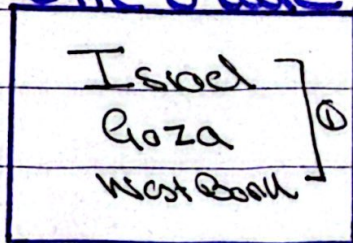 Israel
Gaza ①
West Bank